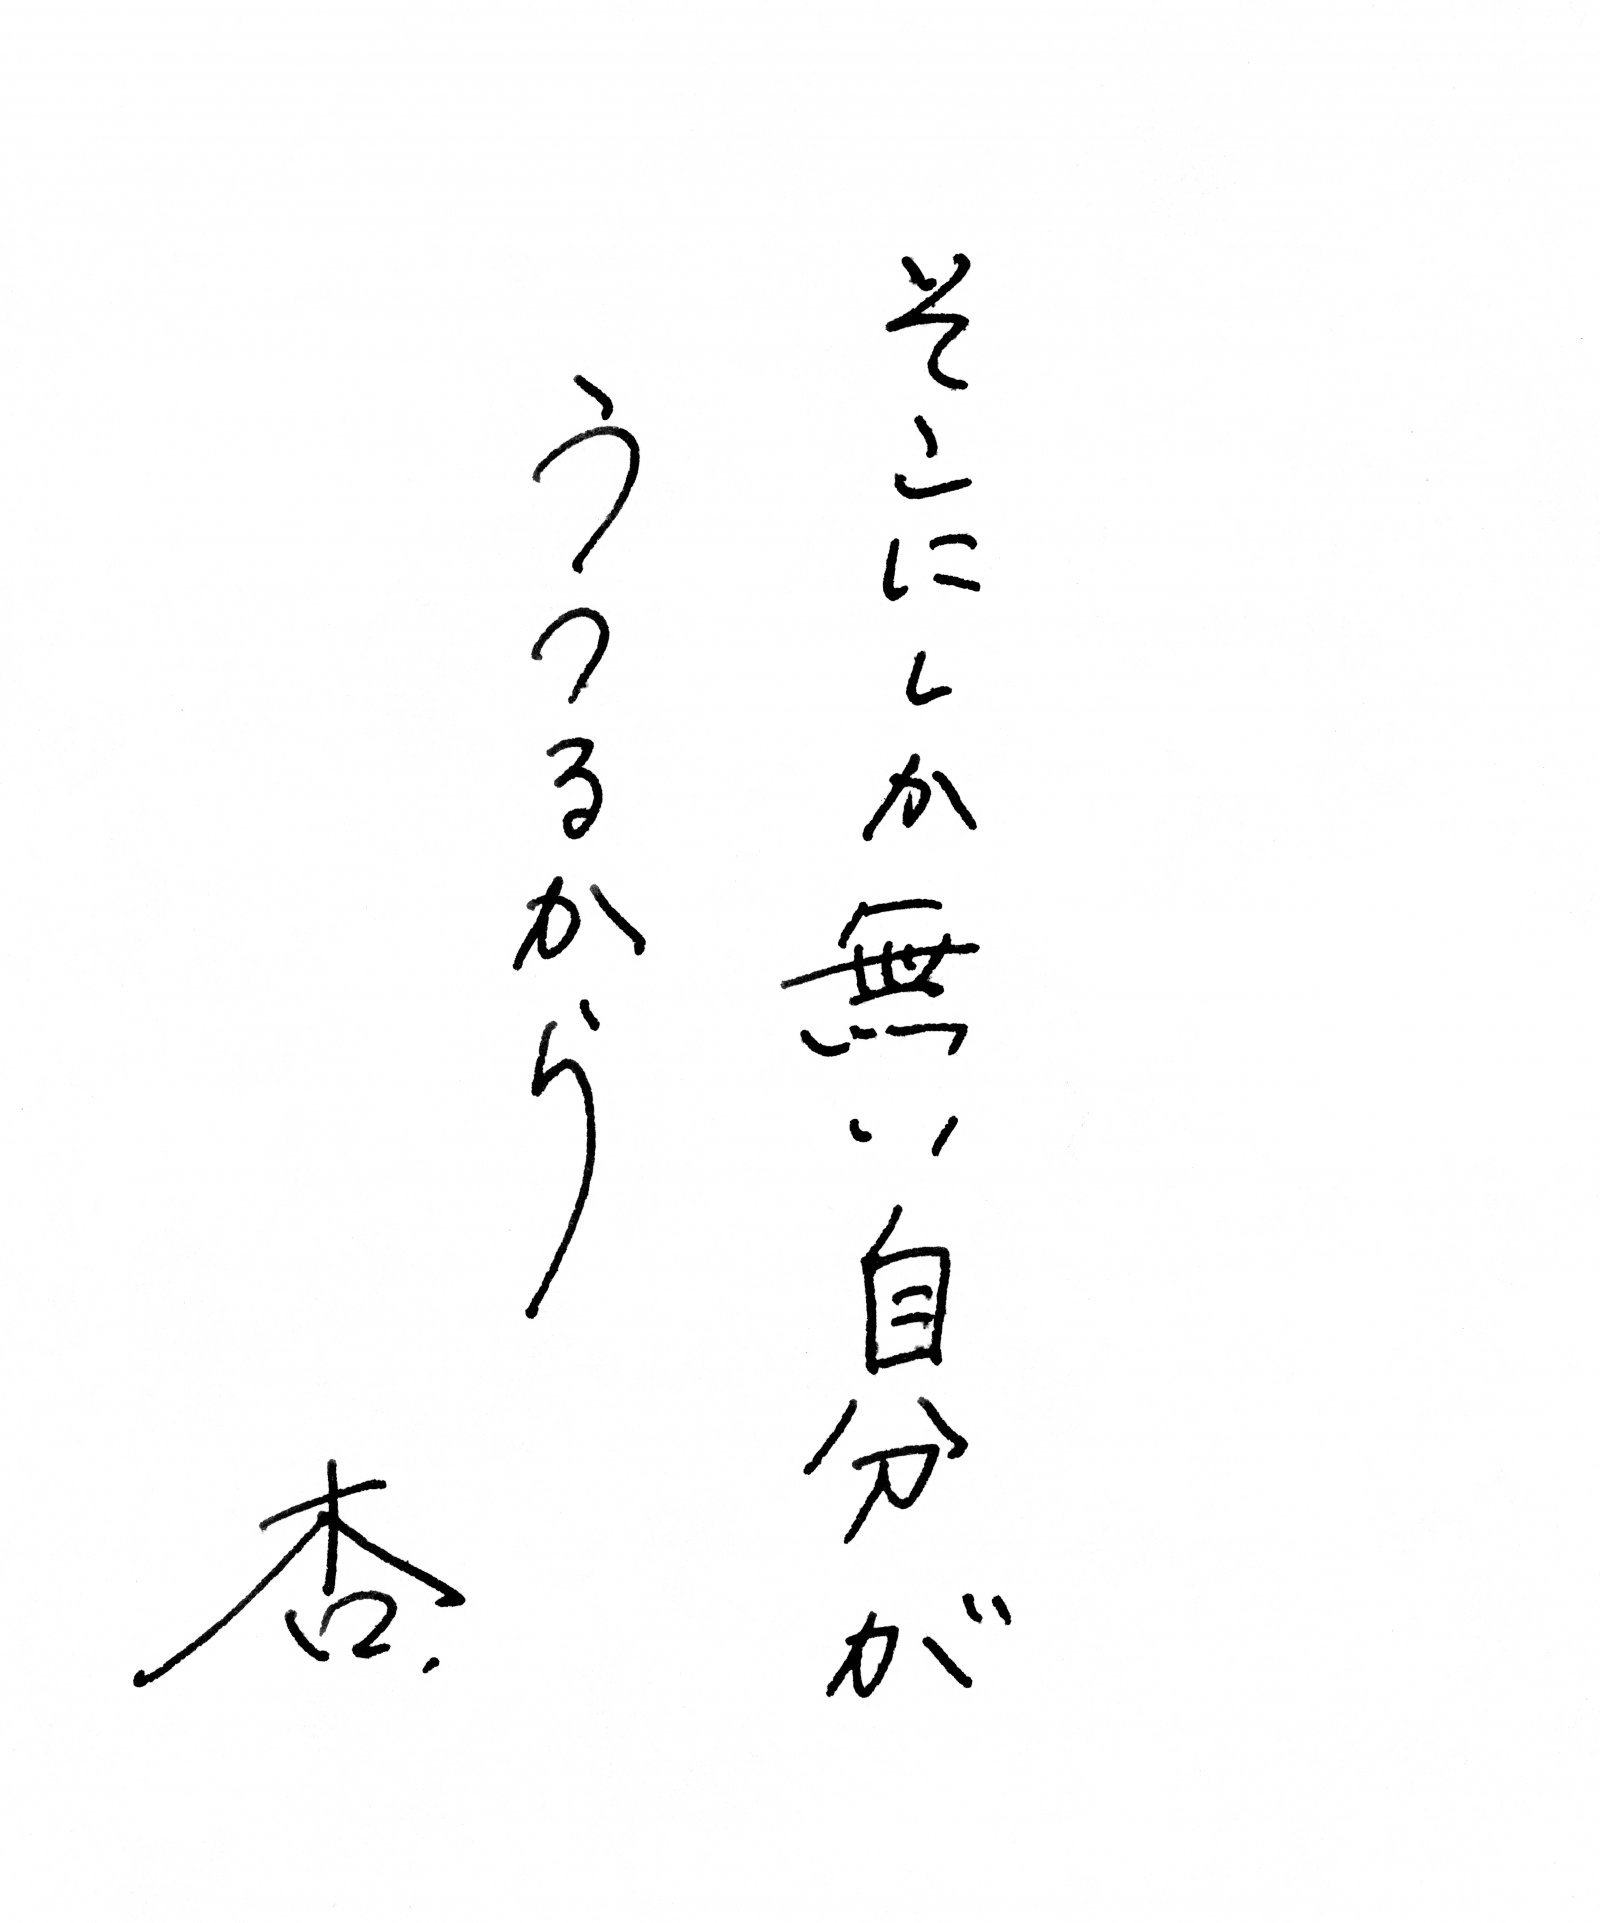 そこにしか無い自分が
うつるから
杏.